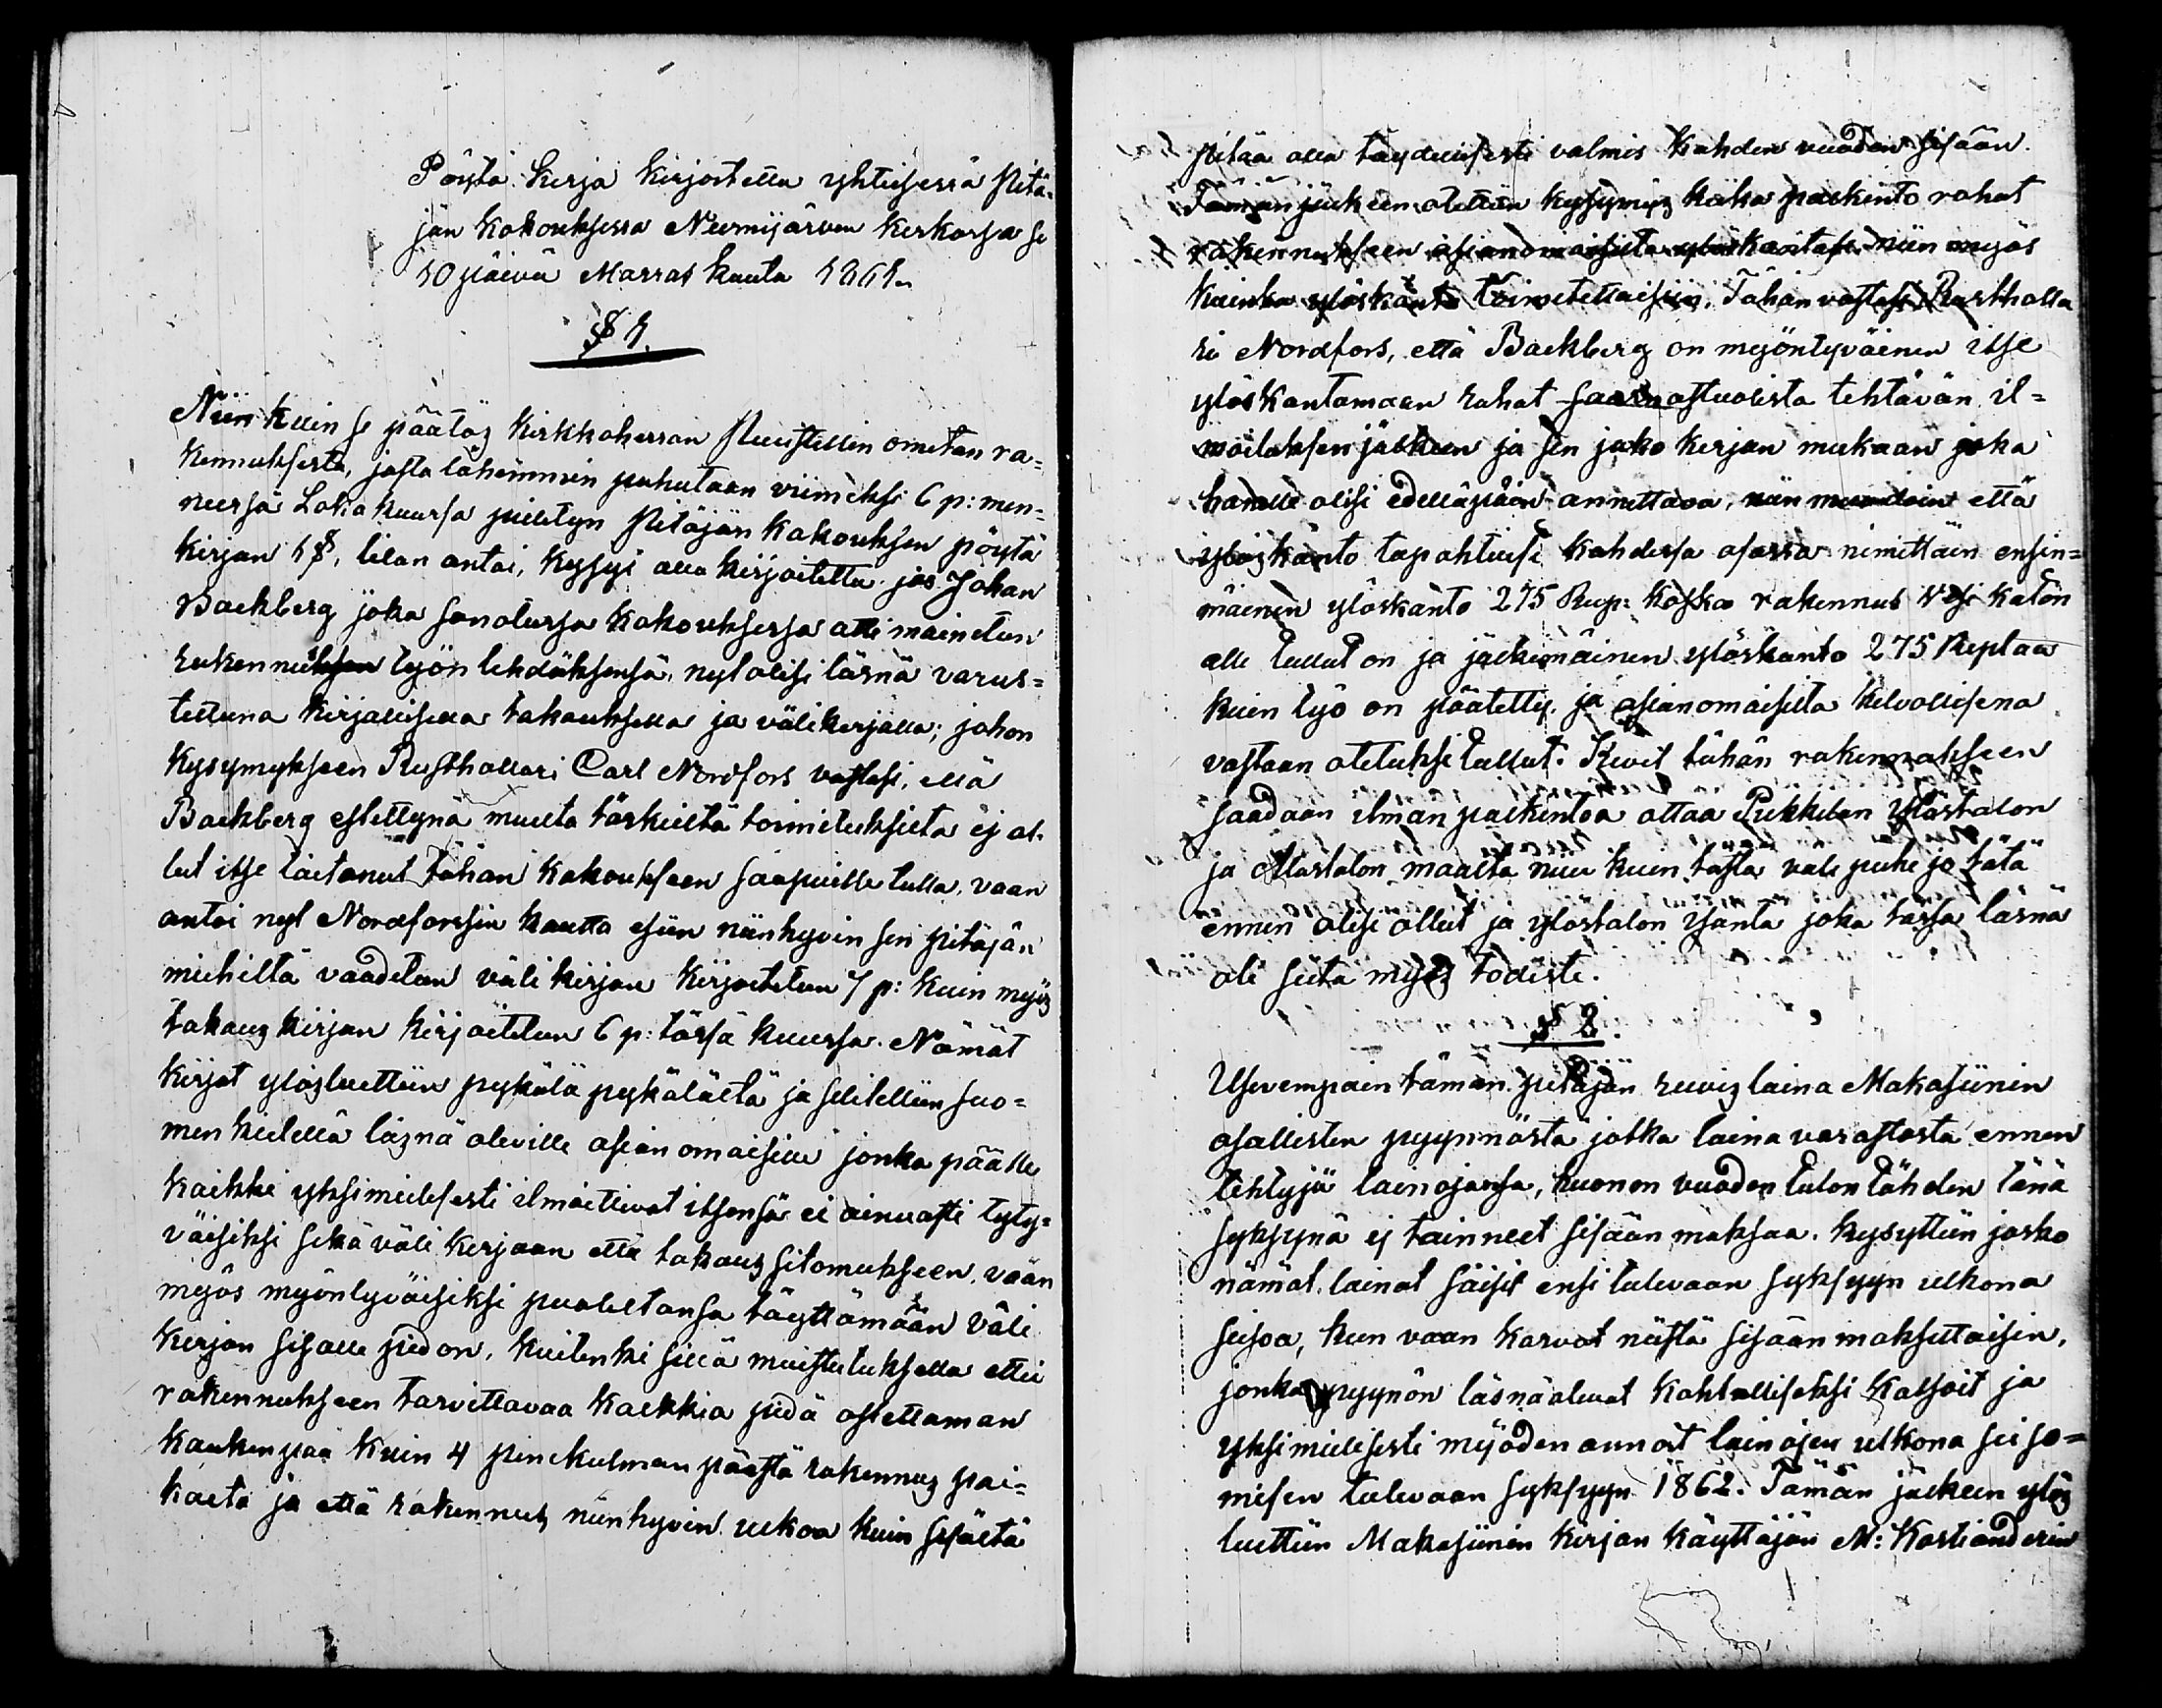 Pöytä kirja kirjoitettu yhteisessä Pitä-
jän kokouksessa Nurmijärven kirkossa se
10 päivä Marras kuuta 1861.
§ 1.
Niin kuin se päätöz kirkkoherran Puustellin ometan ra-
kennuksesta, josta lähemmin puhutaan viimeksi 6 p: men-
neessä Loka kuussa pidetyn Pitäjän kokouksen pöytä
kirjan 1 §, tilan antoi, kysyi alla kirjoitettu jos Johan
Backberg joka sanotussa kokouksessa otti mainitun
rakennuksen työn tehdäksensä, nyt olisi läsnä varus-
tettuna kirjallisella takauksella ja välikirjalla; johon
kysymykseen Rusthollari Carl Nordfors vastasi, että
Backberg estettynä muilta tärkeiltä toimituksilta ej ol-
lut itse taitanut tähän kokoukseen saapuille tulla, vaan
antoi nyt Nordforssin kautta esiin niinhyvin sen pitäjän
miehiltä vaaditun väli kirjan kirjoitetun 7 p: kuin myöz
takauz kirjan kirjoitetun 6 p: tässä kuussa. Nämät
kirjat ylözluettiin pykälä pykälältä ja selitettiin suo-
men kielellä läznä oleville asian omaisille jonka päälle
kaikki yksimielisesti ilmoittivat itsensä ei ainoasti tyty-
väisiksi sekä väli kirjaan että takauz sitomukseen, vaan
myös myöntyväisiksi puolestansa täyttämään väli
kirjan sisälle pidon, kuitenki sillä muistutuksella ettei
rakennukseen tarvittavaa kalkkia pidä ostettaman
kaukempaa kuin 4 peninkulman päästä rakennuz pai-
kasta ja että rakennuz niinhyvin ulkoa kuin sisältä
pitää olla täydellisesti valmis kahden vuoden sisään.
Tämän jälkeen otettiin kysymyz koska palkinto rahat
rakennukseen asianomaisilta ylöskantaan niin myös
kuinka ylöskanto toimitettaisiin. Tähän vastasi Rustholla
ri Nordfors, että Backberg on myöntyväinen itse
ylöskantamaan rahat saarnastuolista tehtävän il-
moituksen jälkeen ja sen jako kirjan mukaan joka
hänelle olisi edelläpäin annettava, niin muodoin että
ylözkanto tapahtuisi kahdessa osassa nimittäin ensin-
mäinen ylöskanto 275 Rup: koska rakennus vesi katon
alle tullut on ja jälkimäinen ylöskanto 275 Ruplaa
kuin työ on päätetty ja asianomaisilta kelvollisena
vastaan otetuksi tullut. Kivet tähän rakennukseen
saadaan ilman palkintoa ottaa Pekkilan Ylöstalon
ja Alastalon maalta niin kuin tästä väli puhe jo tätä
ennen olisi ollut ja ylöstalon Isäntä joka tässä läsnä
oli siitä myöz todisti.
§ 2.
Usevempain tämän pitäjän luviz laina Makasiinin
osallisten pyynnöstä jotka laina varastosta ennen
tehtyjä lainojansa, huonon vuoden tulon tähden tänä
syksynä ej tainneet sisään maksaa, kysyttiin josko
nämät lainat säisit ensi tulevaan syksyyn ulkona
seisoa, kun vaan karvot niistä sisään maksettaisiin,
jonka pyynön läsnäolevat kohtulliseksi katsoit ja
yksimielisesti myöden annoit lainojen ulkona seiso-
misen tulevaan syksyyn 1862. Tämän jälkeen ylöz
luettiin Makasiinin kirjan käyttäjän M: Kastianderin